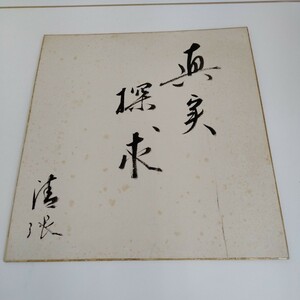 真実
探求
清張